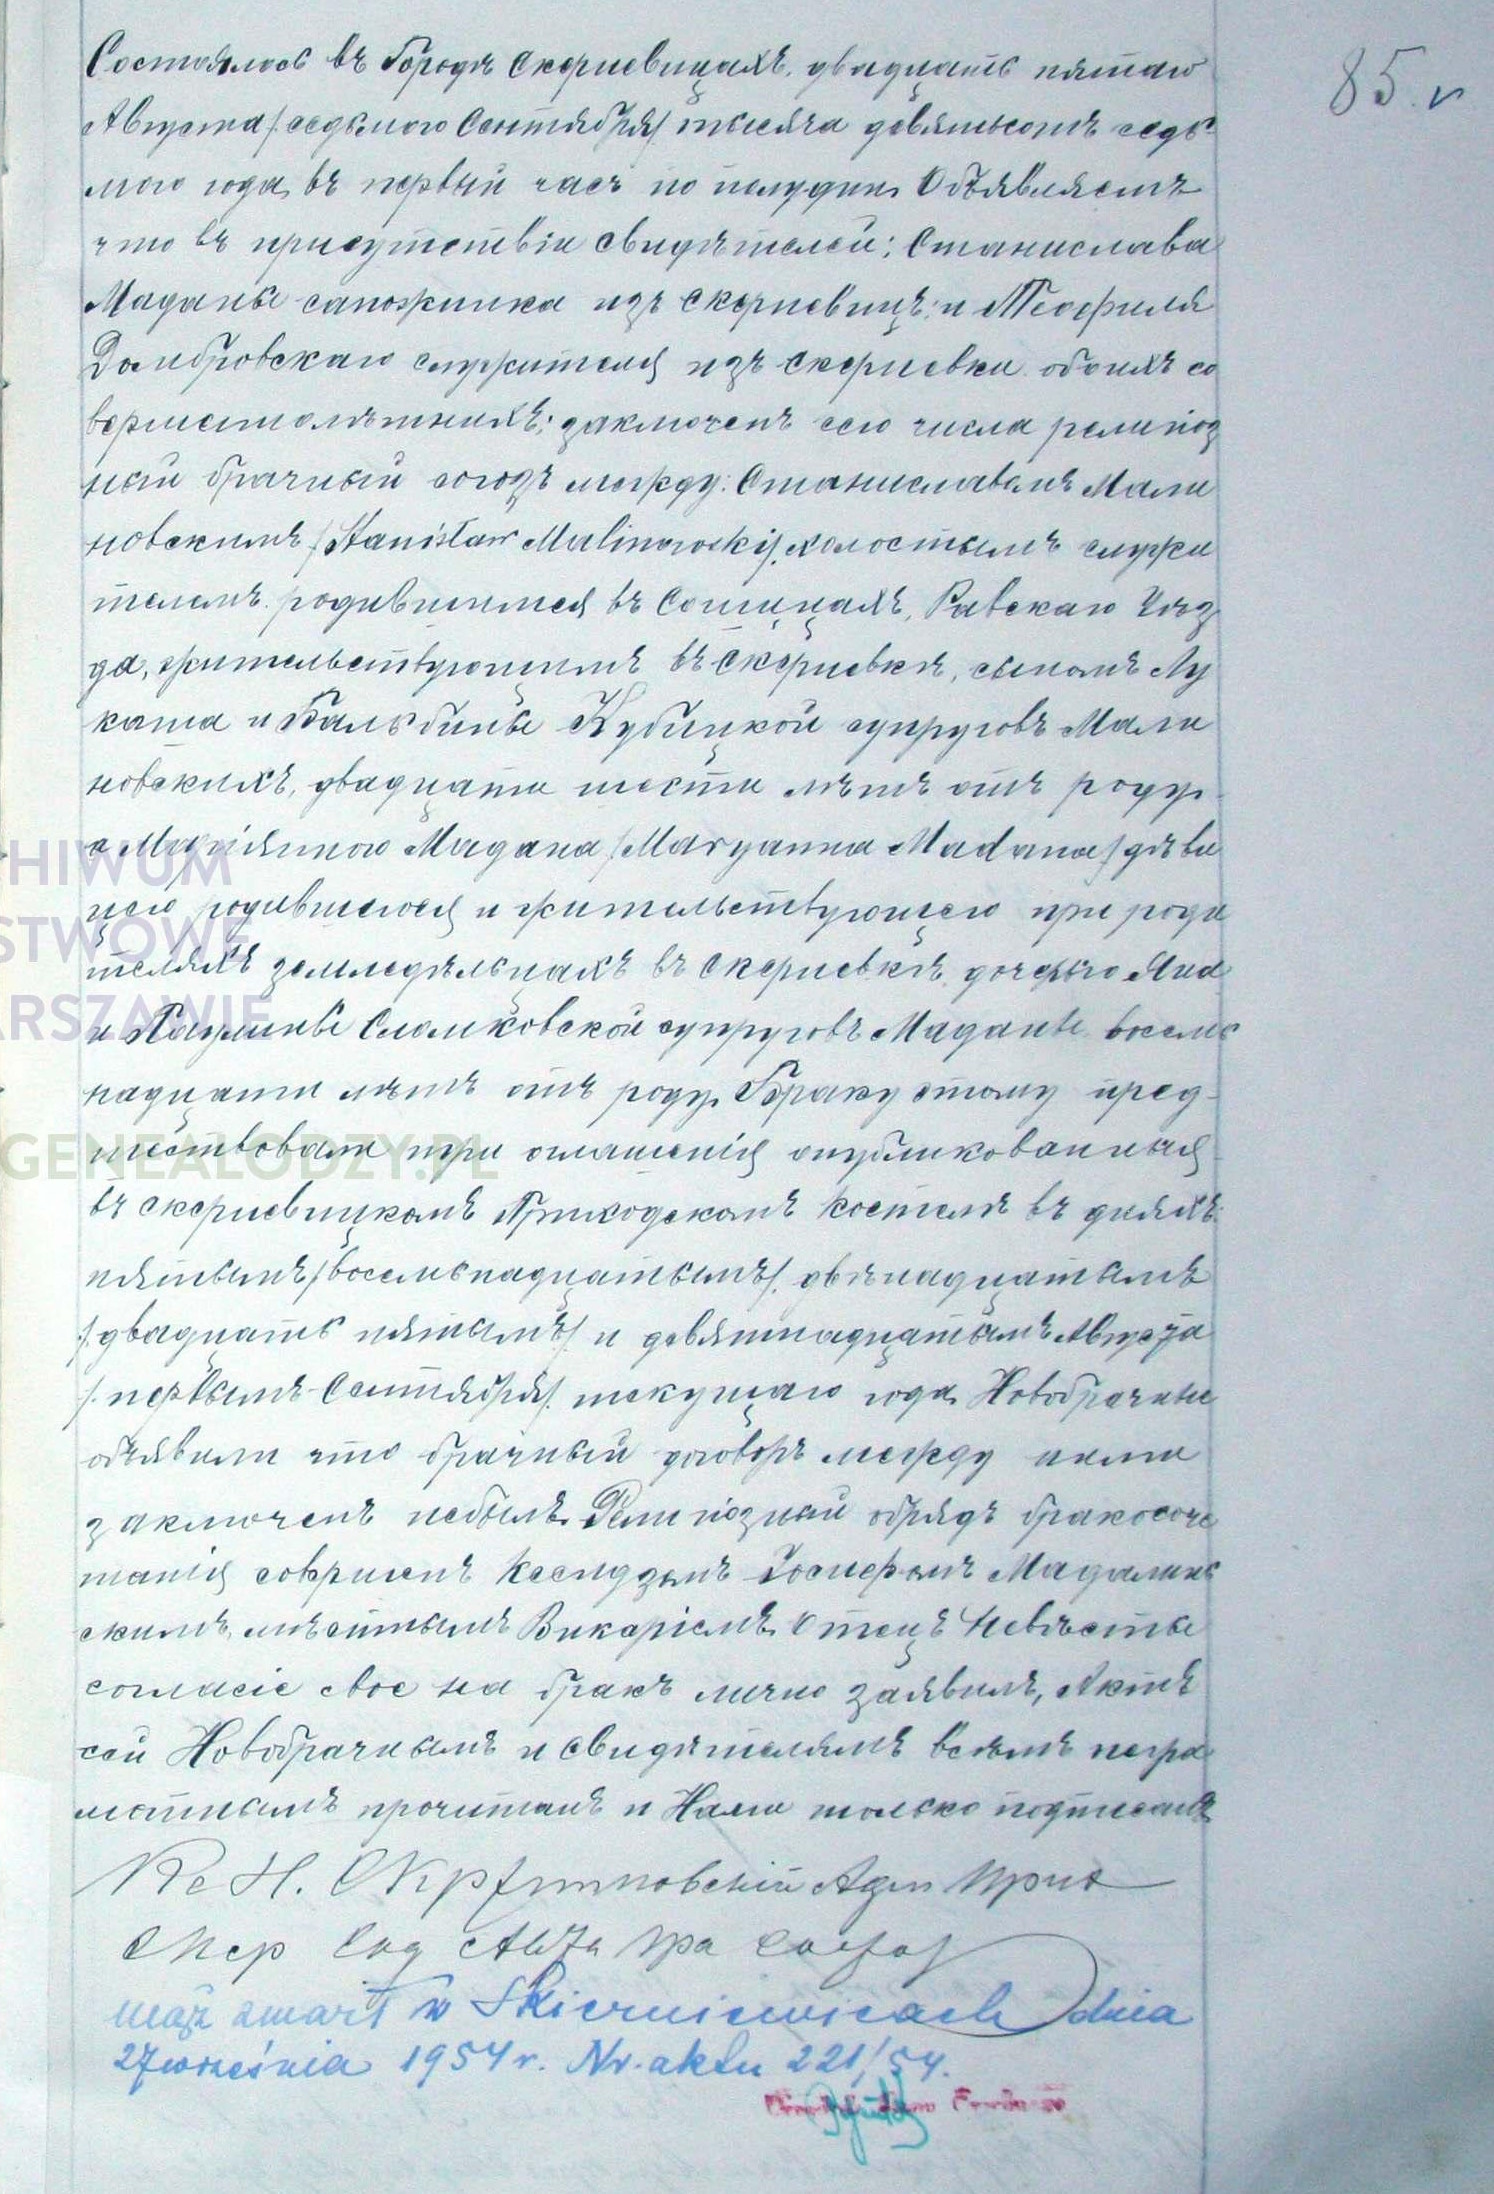 Состоялось въ Городѣ Скерневицахъ, двадцать пятаго
Августа /седьмого Сентября/ тысяча девятьсотъ седь-
мого года, въ первый часъ по полудни. Объявляемъ
что въ присутствіи свидѣтелей: Станислава
Маданы сапожника изъ Скерневицъ: и Теофиля
Домбровскаго служителя изъ Скерневки обоихъ со
вершеннолѣтнихъ; заключенъ сего числа религіоз
ный брачный союзъ между: Станиславомъ Мали
новскимъ /Stanisław Malinowski/ холостымъ служи
телемъ родившимся въ Сошицахъ, Равскаго Уѣз
да, жительствующимъ въ Скерневкѣ, сыномъ Лу
каша и Бальбины Кубицкой супруговъ Мали
новскихъ, двадцати шести лѣтъ отъ роду
с Маріянною Мадана /Maryanna Madana/ дѣви
цею родившеюся и жительствующею при роди
теляхъ земледѣльцахъ въ Скерневкѣ, дочерью Яна
и Паулины Сломковской супруговъ Маданы восемь
надцати лѣтъ отъ роду. Браку этому пред-
шествовали три оглашенія опубликованныя
въ Скерневицкомъ Приходскомъ Костелѣ въ дняхъ:
пятымъ /восемьнадцатымъ/, двѣнадцатымъ
/двадцать пятымъ/ и девятнадцатымъ Августа
/первымъ Сентября/ текущаго года. Новобрачные
объявили что брачный договоръ между ними
заключенъ небылъ. Религіозный обрядъ бракосоче
танія совершенъ Ксендзомъ Іосифомъ Мадалинь
скимъ, мѣстнымъ Викаріемъ. Отецъ Невѣсты
согласіе свое на бракъ лично заявилъ, Актъ
сей Новобрачнымъ и свидѣтелямъ всѣмъ негра
мотнымъ прочитанъ и Нами только подписанъ
Кс Н. Адм Прих
Скер Сод Акта Гра Сост
mąż zmarł w Skierniewicach dnia
27 września 1954 r. Nr. aktu 221/54.
85
HIWUM
STWOWE
ARSZAWIE
GENEALODZY.PL